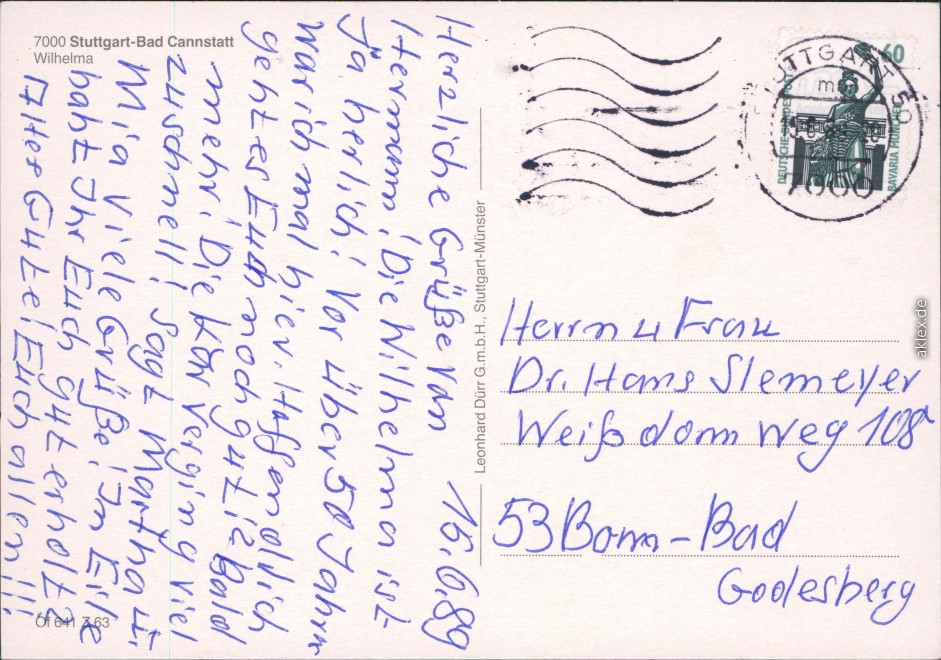 7000 Stuttgart-Bad Cannstatt
Wilhelma
Herzliche Grüße von 15.6.89
Hermann! Die Wilhelma ist
ja herlich! Vor über 50 Jahrn
war ich mal hier. Hoffendlich
geht es Euch noch gut!? Bald
mehr! Die Kur verging viel
zu schnell! Sagt Martha u.
Mia viele Grüße! In Eile
habt Ihr Euch gut erholt?
Alles Gute! Euch allen!!!
Of 641 Z 63
Leonhard Dürr G.m.b.H., Stuttgart-Münster
STUTTGART 50
7000
60
DEUTSCHE BUNDESPOST
BAVARIA MÜNCHEN
Herrn u Frau
Dr. Hans Slemeyer
Weißdornweg 108a
53 Bonn-Bad
Godesberg
aklex.de